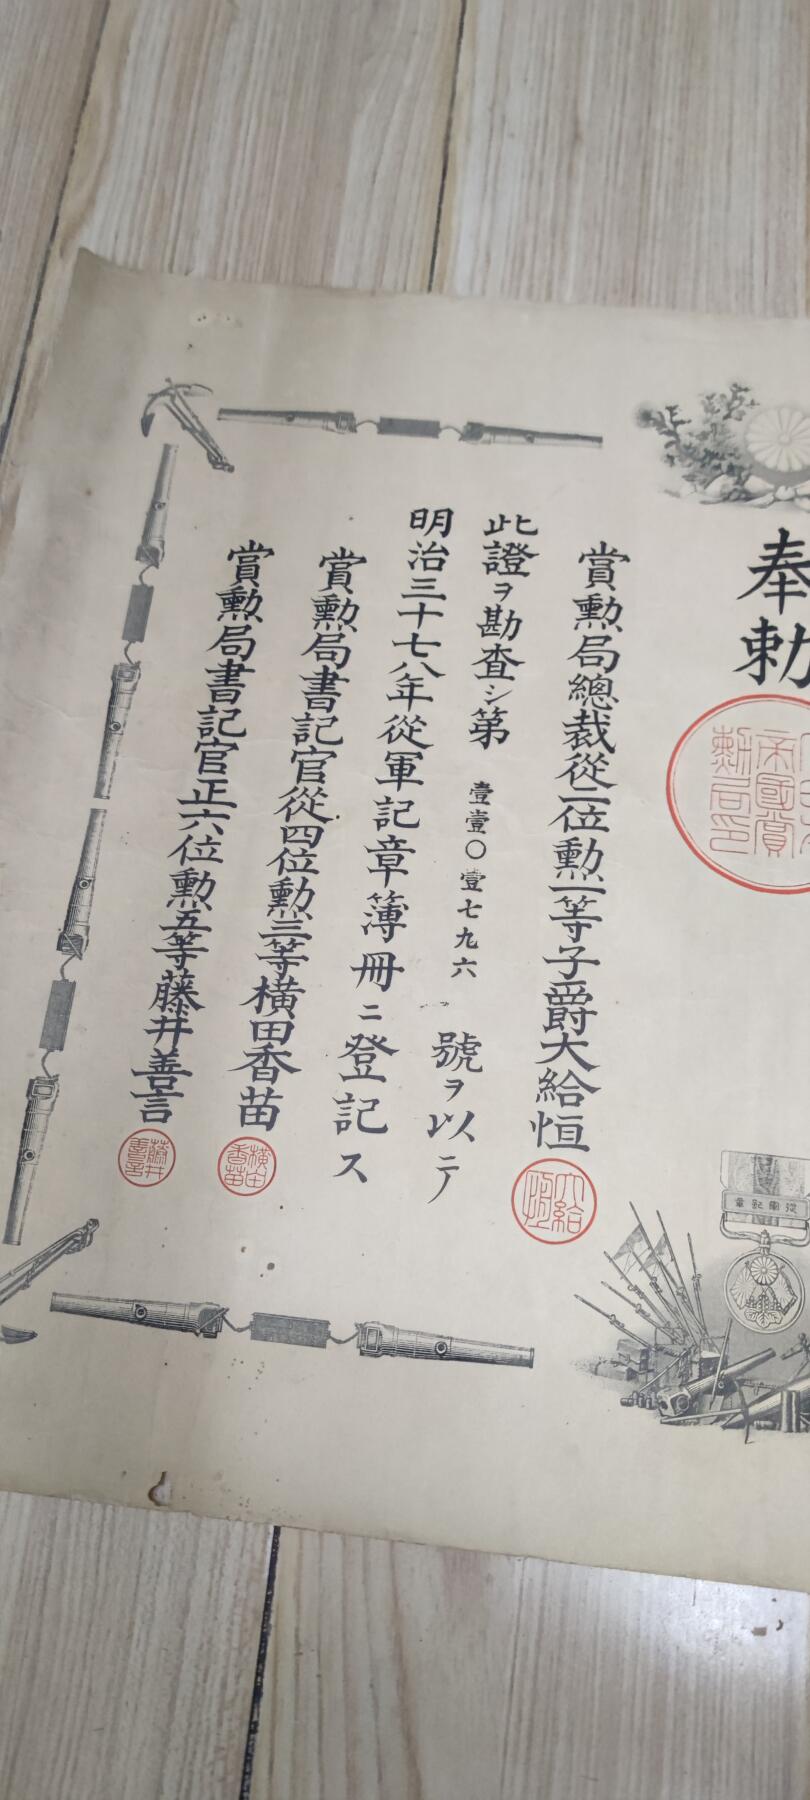 奉勅
賞勲局總裁從二位勲一等子爵大給恒
此證ヲ勘査シ第壹壹〇壹七九六號ヲ以テ
明治三十七八年從軍記章簿冊ニ登記ス
賞勲局書記官從四位勲三等横田香苗
賞勲局書記官正六位勲五等藤井善言
大給恒
横田香苗
藤井善言
章記軍從